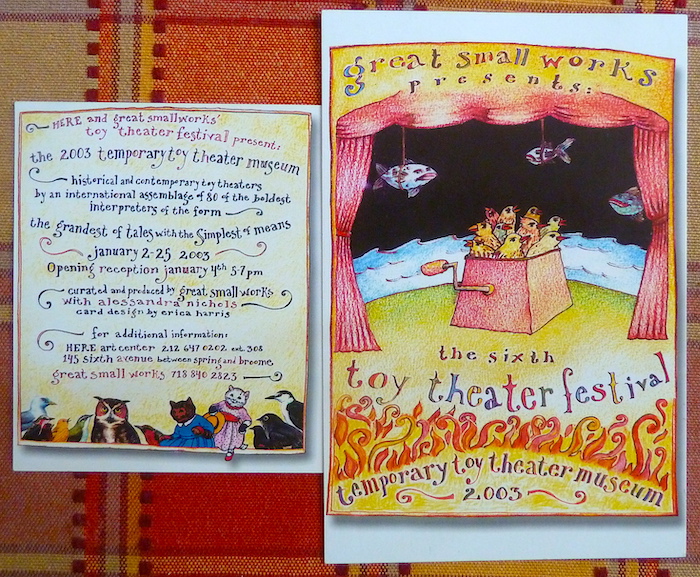 HERE and great small works'
toy theater festival present:
the 2003 temporary toy theater museum
historical and contemporary toy theaters
by an international assemblage of 80 of the boldest
interpreters of the form
the grandest of tales with the simplest of means
january 2-25 2003
Opening reception january 4th 5-7pm
curated and produced by great small works
with alessandra nichols
card design by erica harris
for additional information:
HERE art center 212 647 0202 ext. 308
145 sixth avenue between spring and broome
great small works 718 840 2823
great small works
presents:
the sixth
toy theater festival
temporary toy theater museum
2003